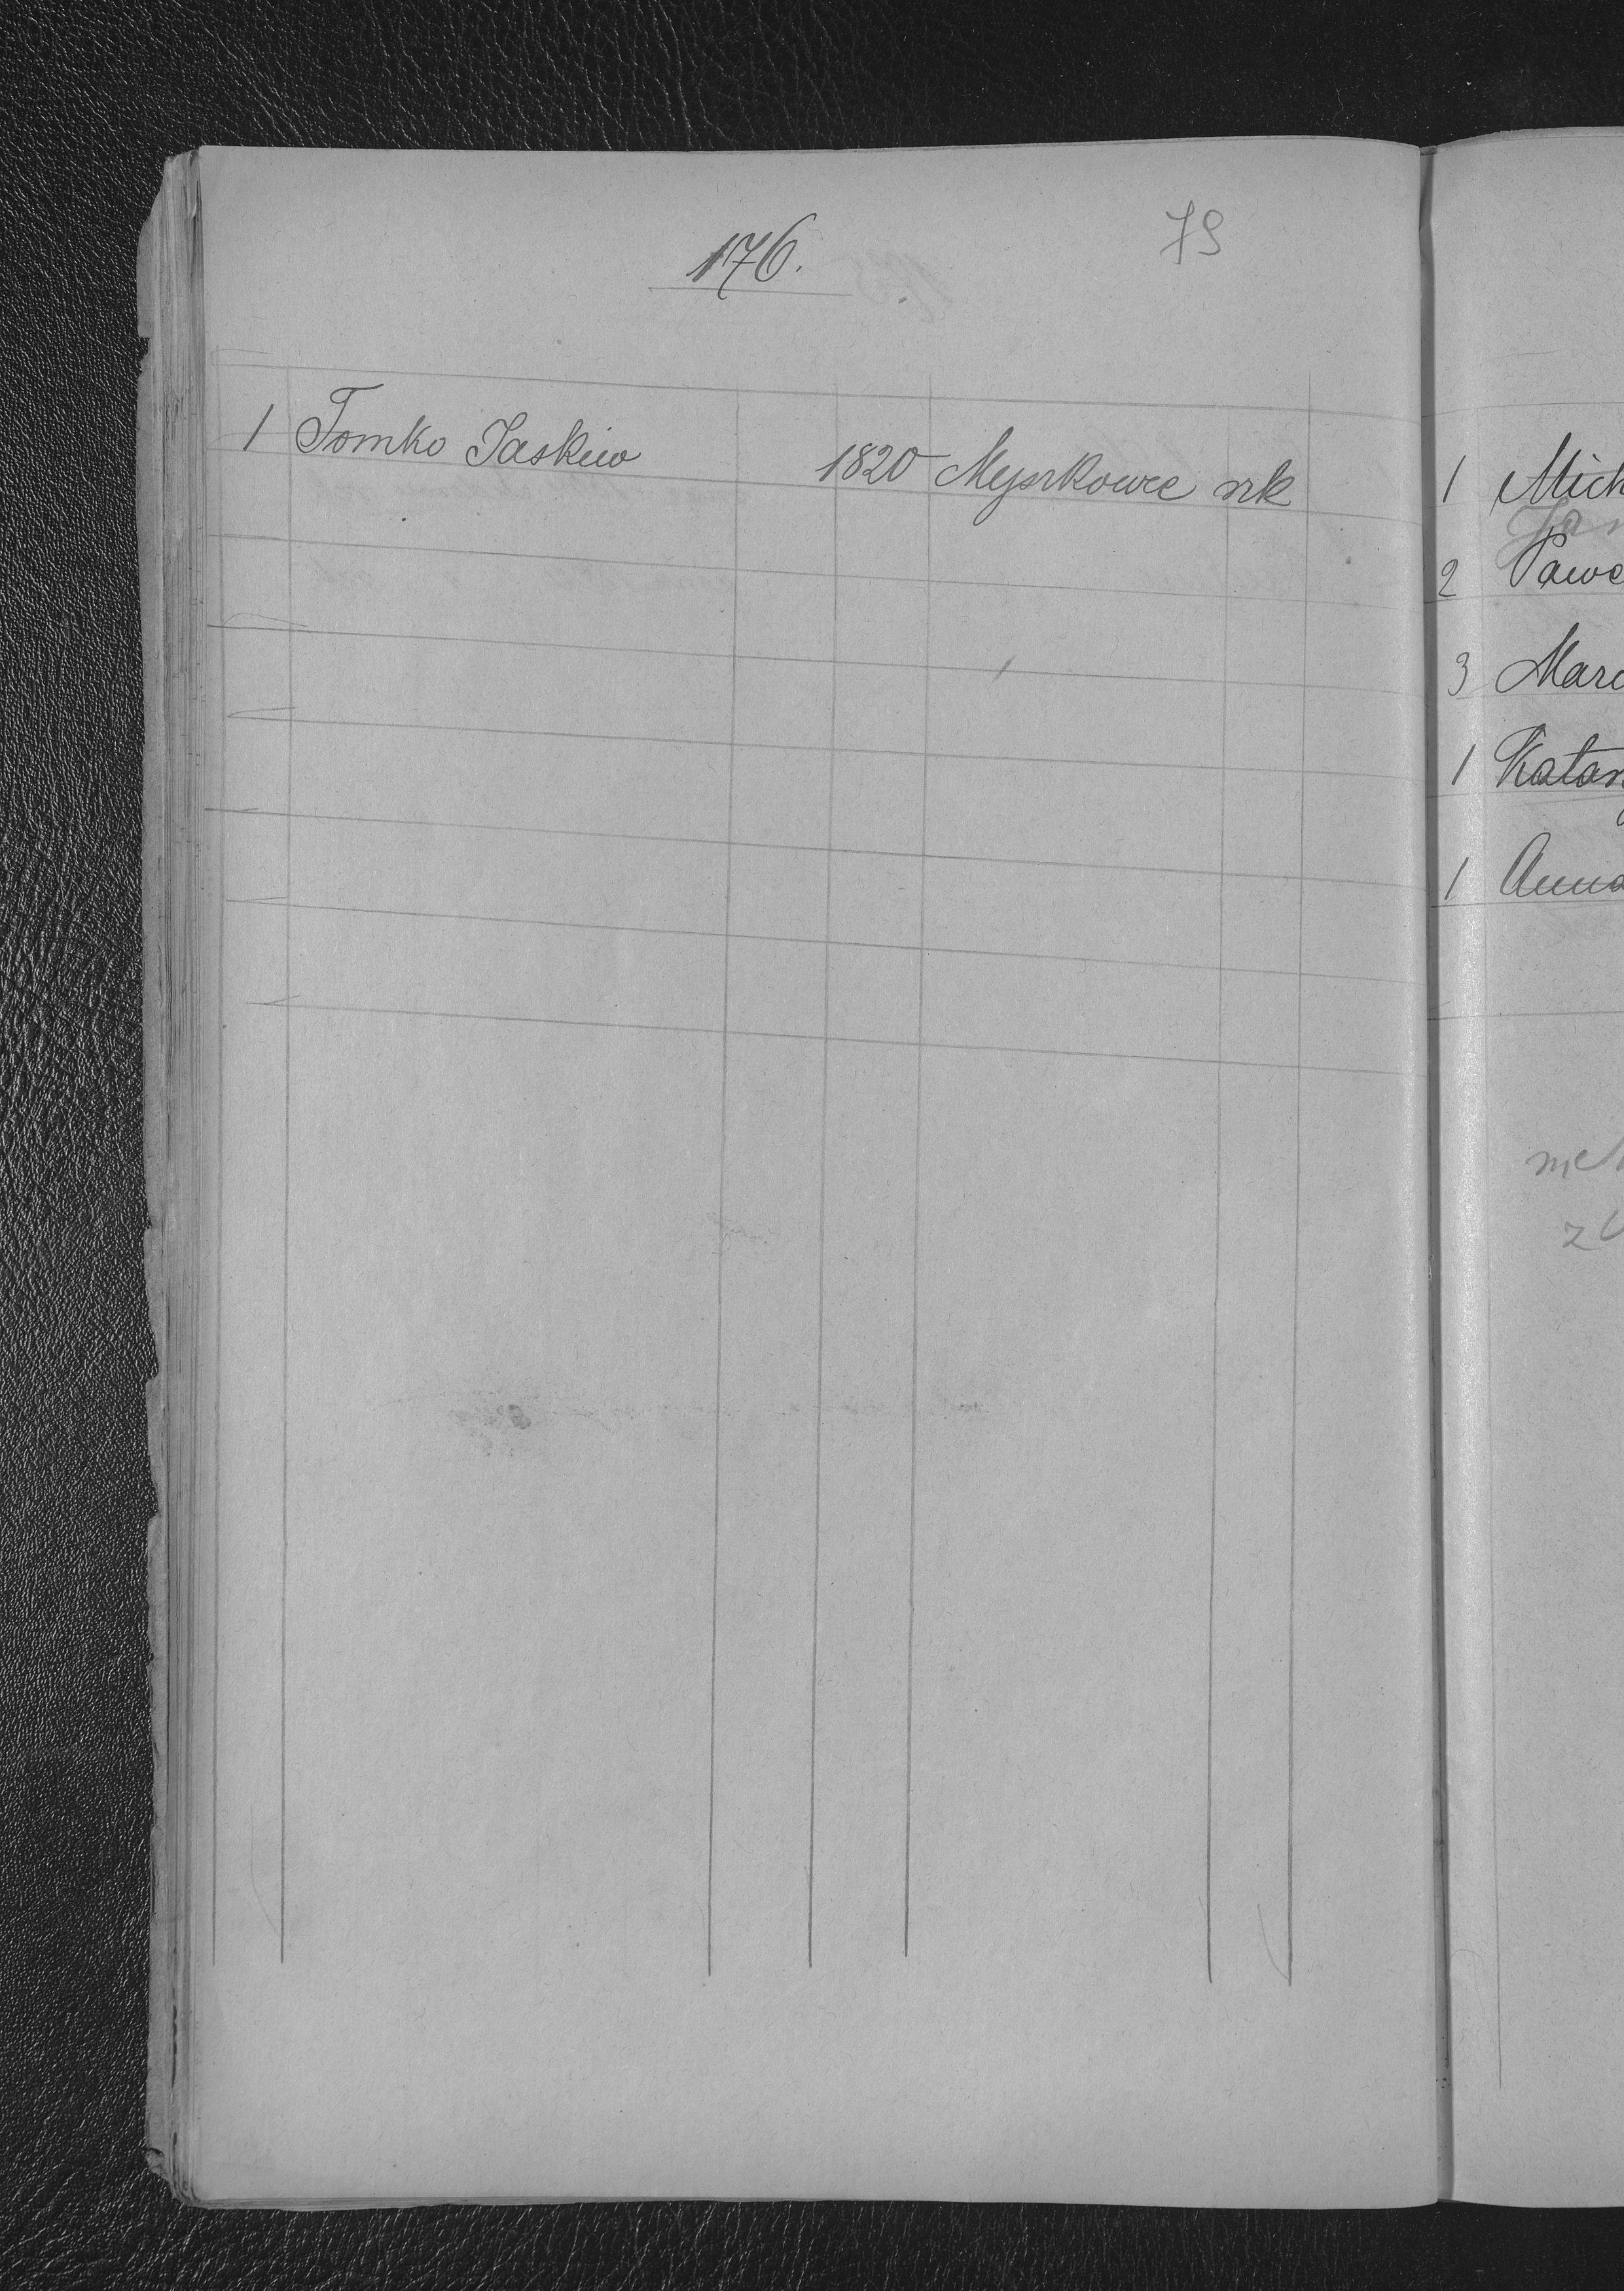 176.
79
1 Tomko Jaskiw 1820 Myszkowce rzk
1 Mich
2 Pawe
3 Mar
1 Katar
1 Anna